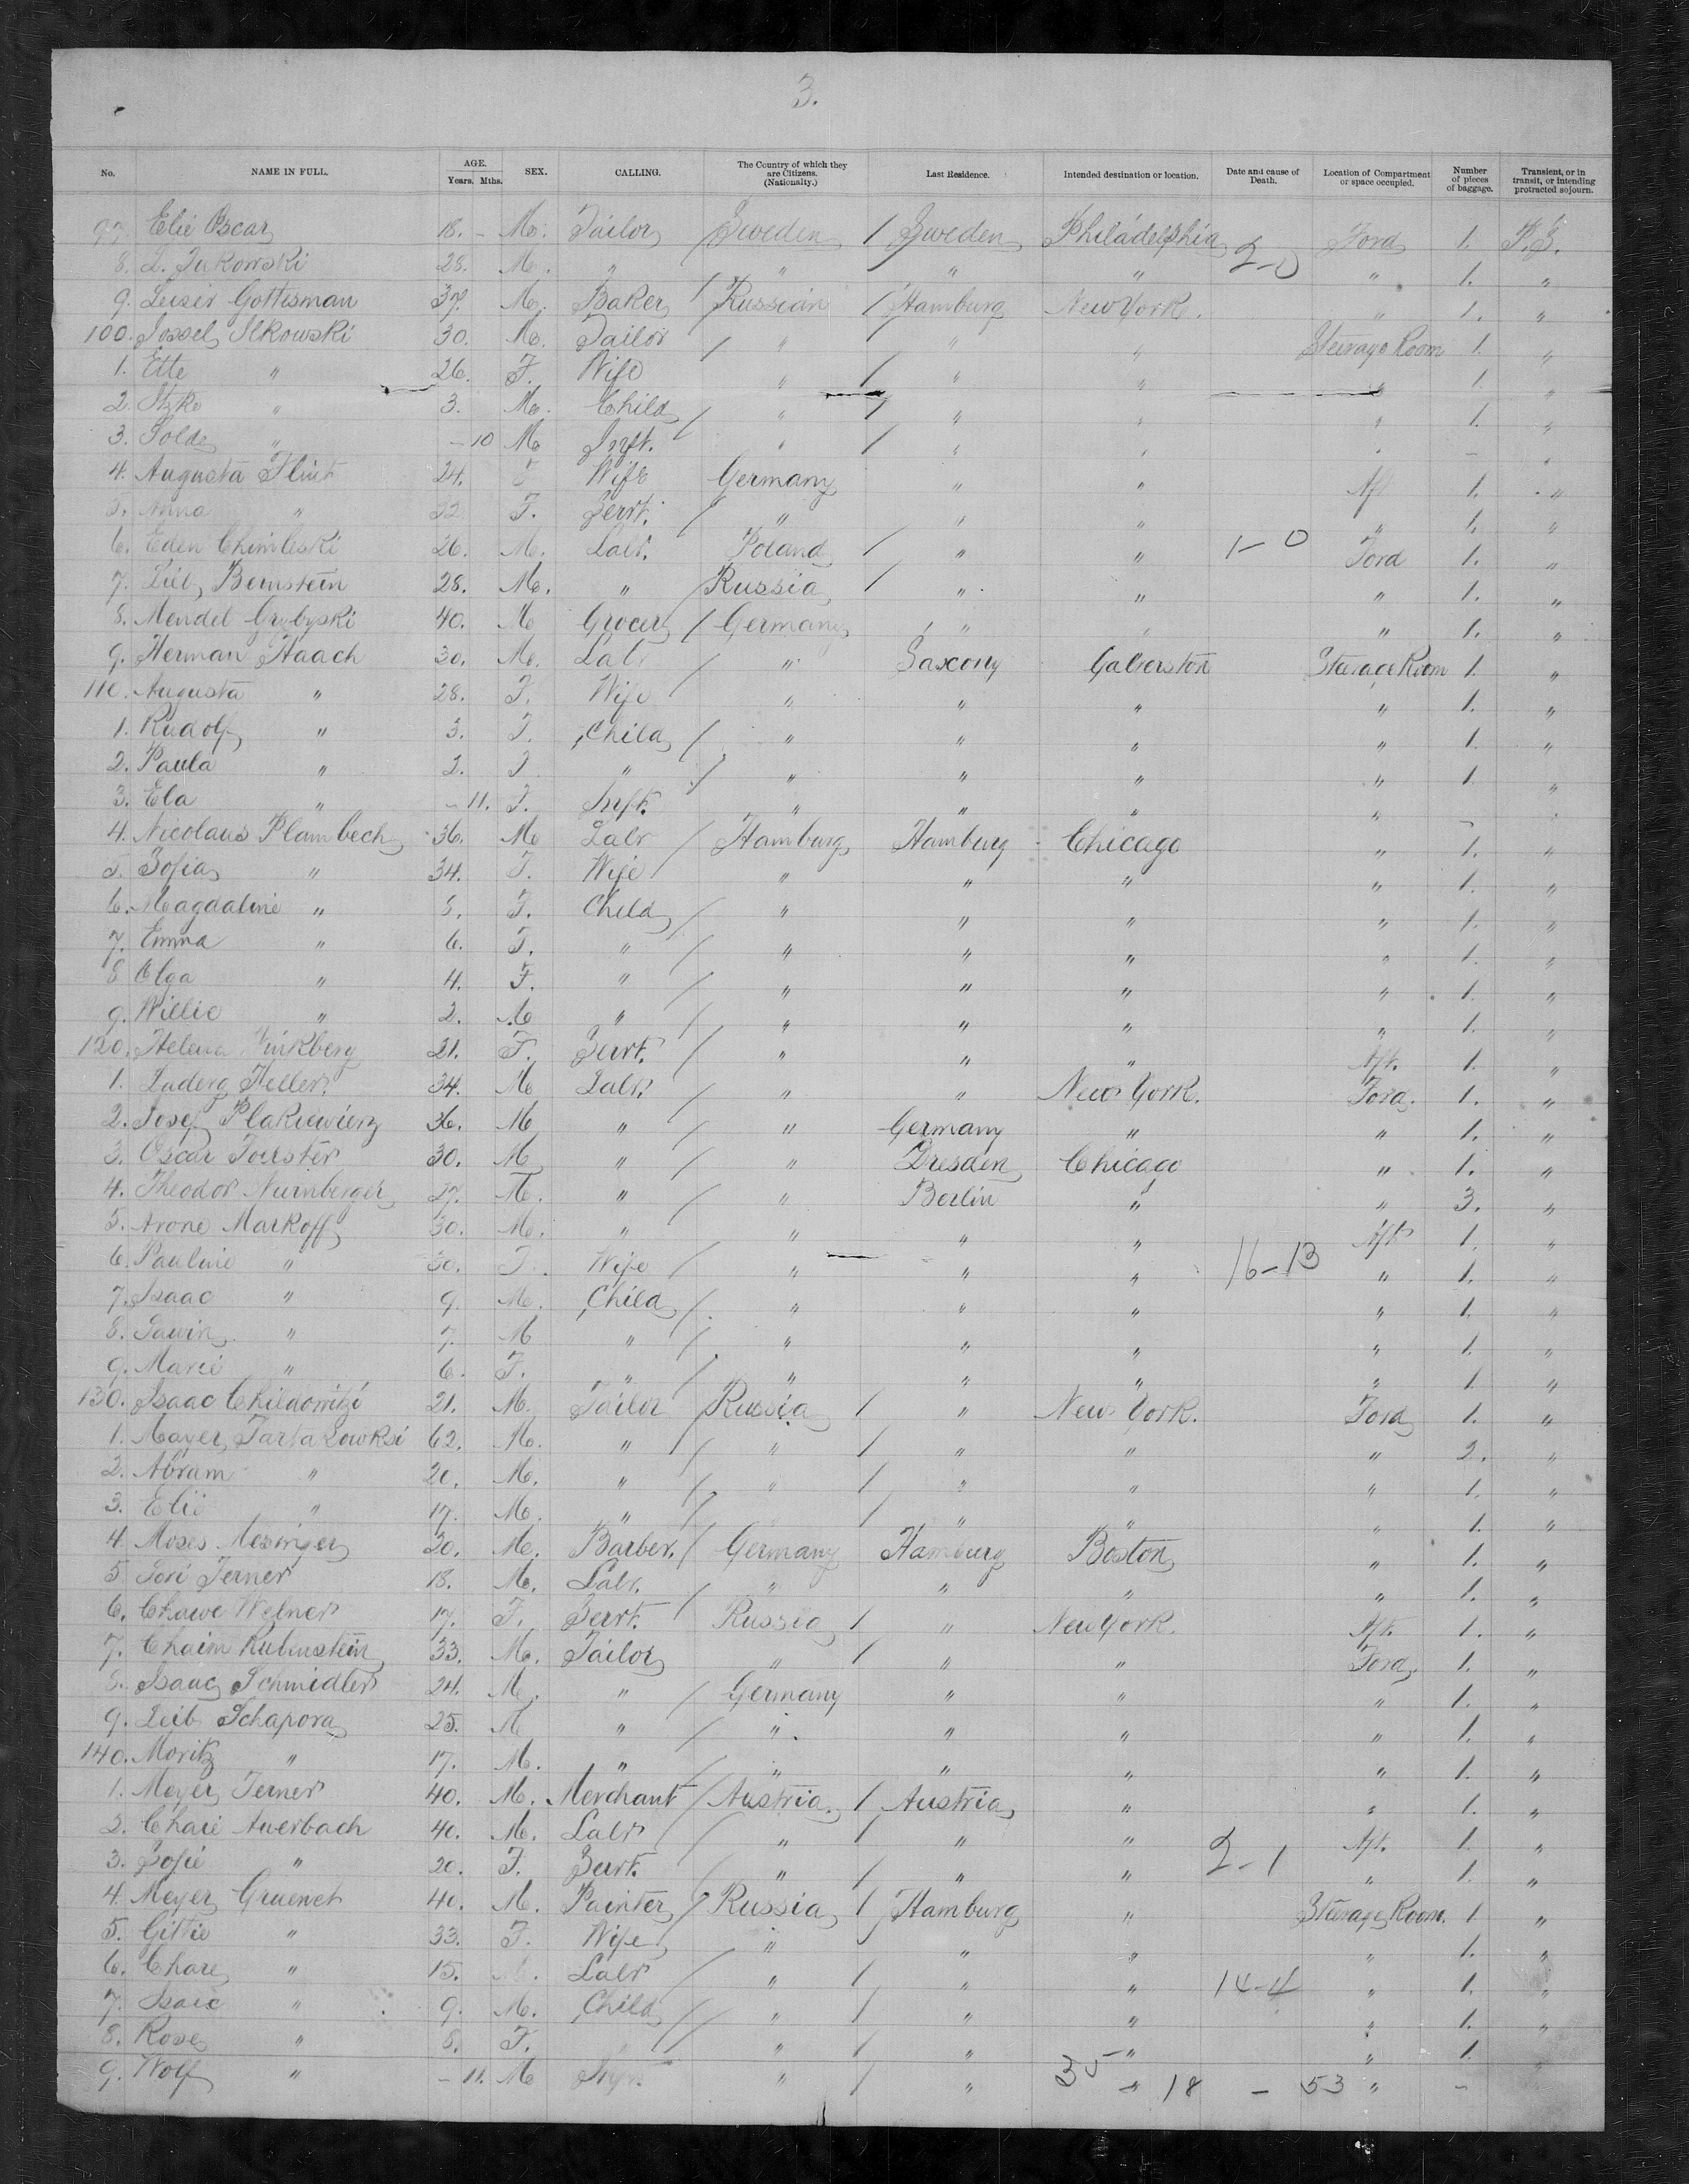 3.
No. NAME IN FULL. AGE. Years. Mths. SEX. CALLING. The Country of which they are Citizens. (Nationality.) Last Residence. Intended destination or location. Date and cause of Death. Location of Compartment or space occupied. Number of pieces of baggage. Transient, or in transit, or intending protracted sojourn.
97 Elie Oscar 18. - M. Tailor Sweden / Sweden Philadelphia Ford 1. P.S.
8. 28. M. " " " " 2-0 " 1. "
9. Leiser Gottisman 37. M. Baker / Russian / Hamburg New York. " 1. "
100. Jossel Ilkowski 30. M. Tailor / " / " " Steerage Room 1. "
1. Ette " 26. F. Wife " / " " " 1. "
2. " 3. M. Child / " / " " " 1. "
3. " - 10 M Inft. " / " " " - "
4. Augusta Flint 24. F Wife Germany " " Aft 1. "
5. Anna " 22 F. Servt. / " " " " 1. "
6. Eden Chimleski 26. M. Labr. Poland / " " 1-0 Ford 1. "
7. Bernstein 28. M. " / Russia / " " " 1. "
8. Mendel 40. M Grocer / Germany / " " " 1. "
9. Herman Haach 30. M. Labr / " Saxony Galverston Steerage Room 1. "
110. Augusta " 28. F. Wife " " " " 1. "
1. Rudolf " 3. F. Child / " " " " 1. "
2. Paula " 2. F " / " " " " 1. "
3. Ela " - 11. F. Inft. " " " " - "
4. Nicolaus Plambech 36. M Labr / Hamburg Hamburg Chicago " 1. "
5. Sofia " 34. F. Wife " " " " 1. "
6. Magdaline " 8. F. Child / " " " " 1. "
7. Emma " 6. F. " / " " " " 1. "
8 Olga " 4. F. " / " " " " 1. "
9. Willie " 2. M " / " " " " 1. "
120. Helena Winkberg 21. F. Servt. / " " " Aft. 1. "
1. Luderg Heller 34. M Labr. / " " New York. Ford. 1. "
2. Josef Plakiewierz 36. M " / " Germany " " 1. "
3. Oscar Foerster 30. M " / " Dresden Chicago " 1. "
4. Theodor Nurnberger 27. M. " / " Berlin " " 3. "
5. Arone Markoff 30. M. " " " " Aft 1. "
6. Pauline " 30. F. Wife / " " " 16-13 " 1. "
7. Isaac " 9. M. Child / " " " " 1. "
8. " 7. M " / " " " " 1. "
9. Marie " 6. F. " / " " " " 1. "
130. Isaac 21. M. Tailor / Russia / " New York. Ford 1. "
1. Mayer Tartakowksi 62. M. " / " / " " " 2. "
2. Abram " 20. M. " / " / " " " 1. "
3. Elie " 17. M. " / " / " " " 1. "
4. Moses Mesinger 20. M. Barber. / Germany Hamburg Boston " 1. "
5 Ferner 18. M. Labr. / " " " " 1. "
6. Chawe Welner 17. F. Servt. / Russia / " New York. Aft. 1. "
7. Chaim Rubenstein 33. M. Tailor " / " " Ford. 1. "
8. Isaac Schmidler 24. M. " / Germany " " " 1. "
9. Leib Schapora 25. M " / " " " " 1. "
140. Moritz " 17. M. " / " " " " 1. "
1. Meyer Ferner 40. M. Merchant / Austria / Austria " " 1. "
2. Chaie Auerbach 40. M. Labr / " / " " Aft. 1. "
3. Sofie " 20. F. Servt. / " / " " 2-1 " 1. "
4. Meyer Gruenet 40. M. Painter / Russia / Hamburg " Steerage Room. 1 "
5. Gittie " 33. F. Wife " " " " 1. "
6. Chare " 15. M. Labr / " / " " 14-4 " 1. "
7. Isaic " 9. M. Child / " / " " " 1. "
8. Rose " 8. F. / " / " " " 1. "
9. Wolf " - 11. M Inft. " / " " " -
35 - 18 - 53